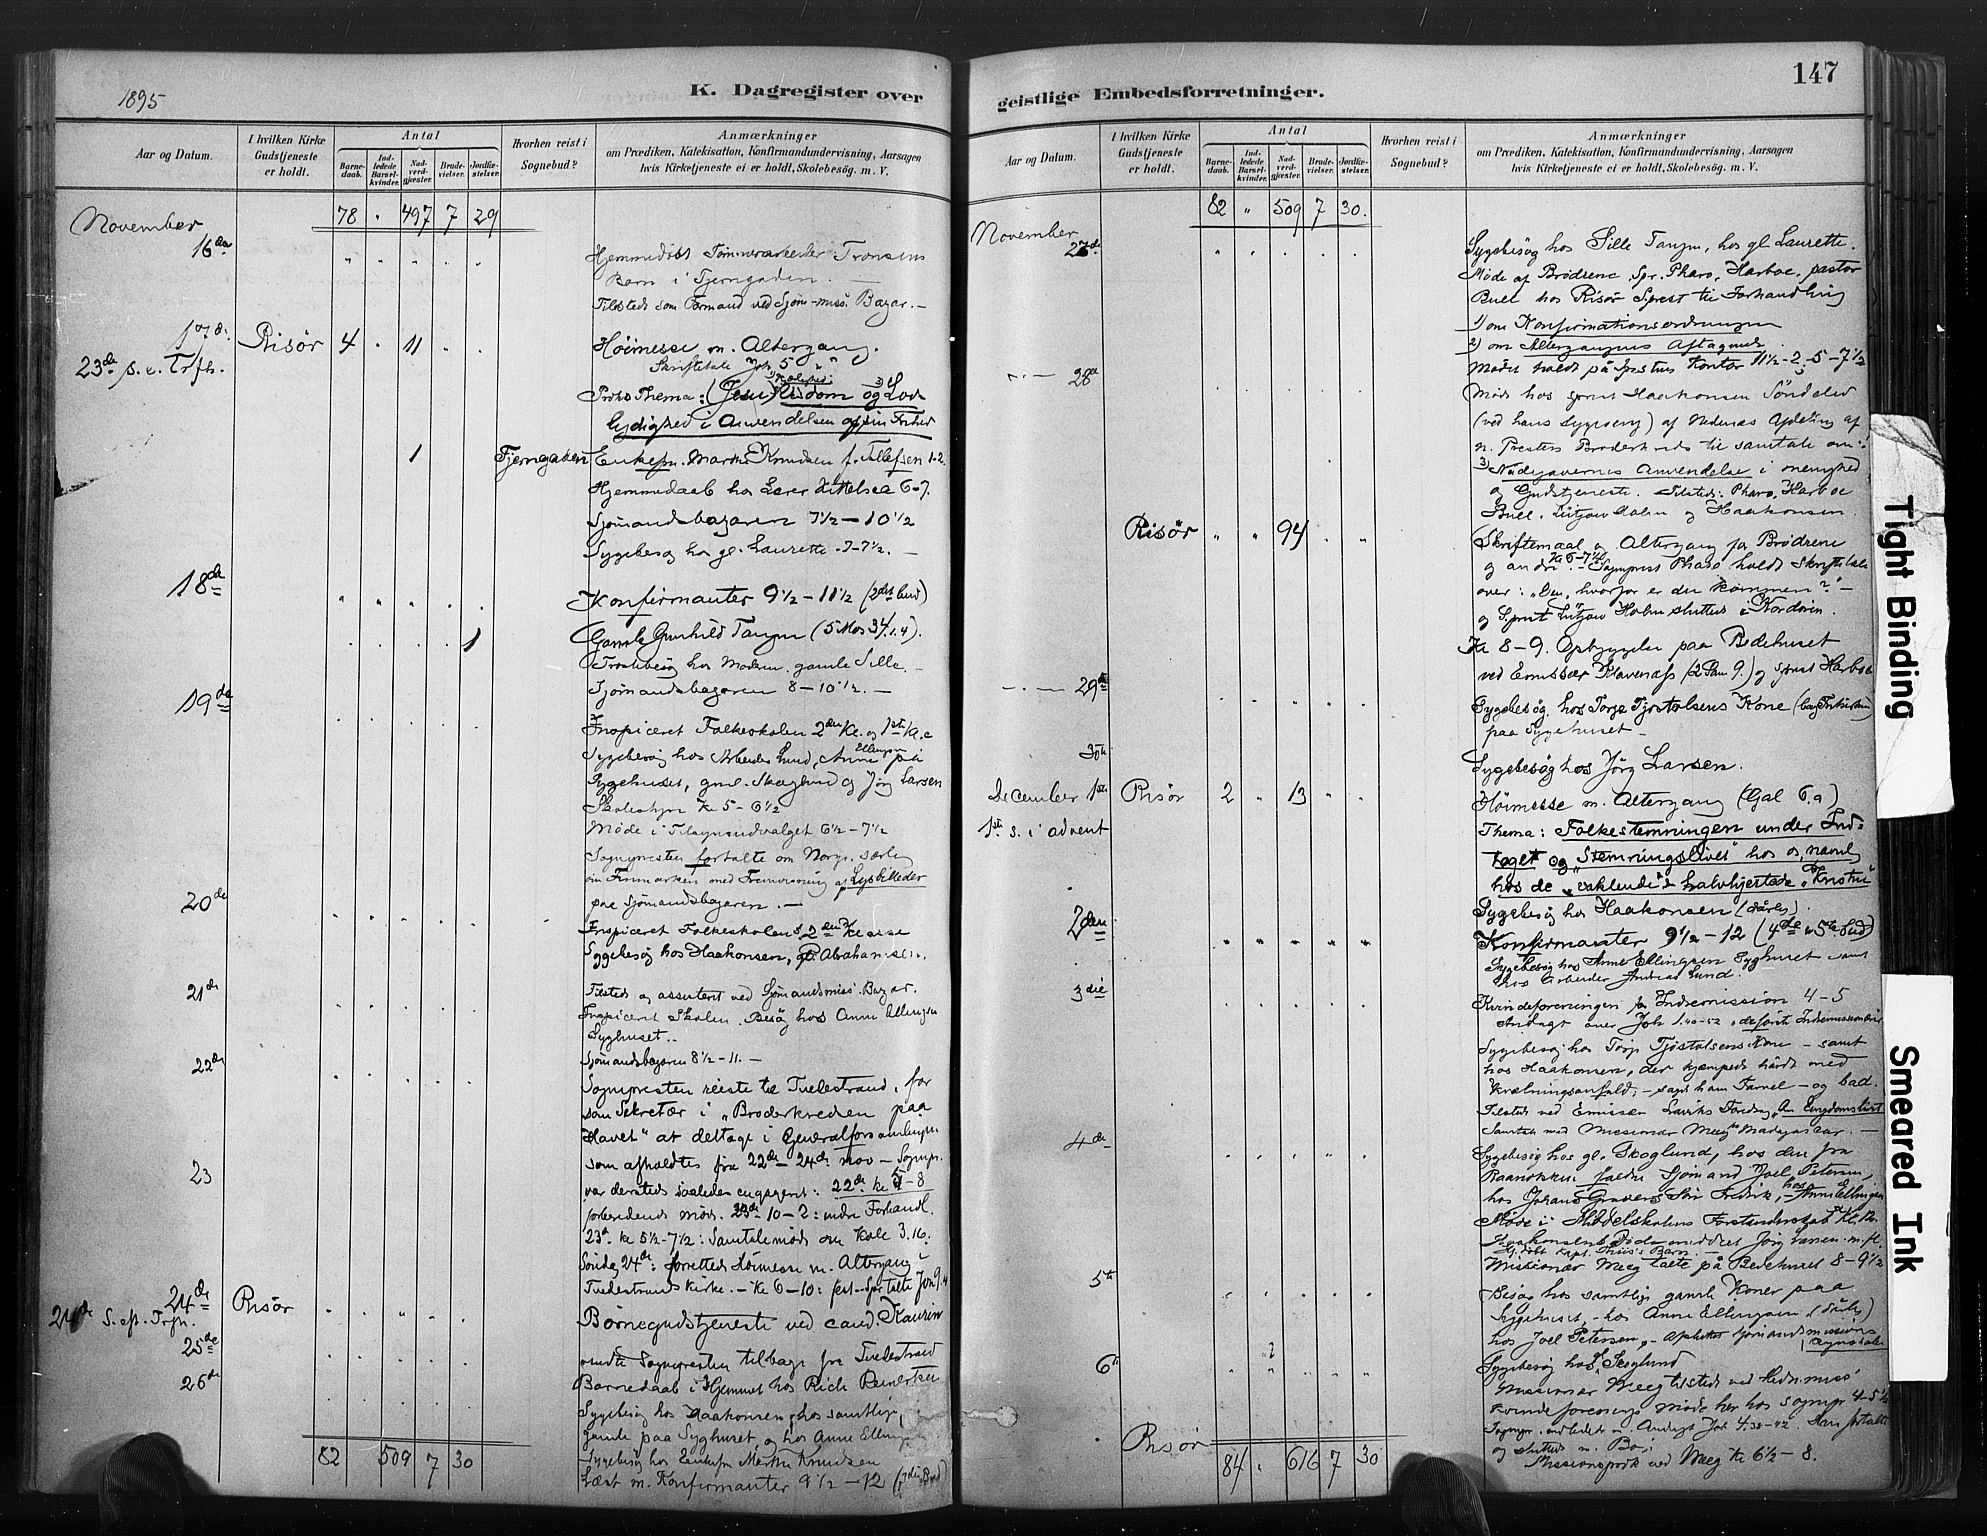 1895
K. Dagregister over
Aar og Datum.
I hvilken Kirke Gudstjeneste er holdt.
Antal
Barne-daab.
Ind-ledede Barsel-kvinder.
Nad-verd-gjæster.
Brude-vielser.
Jordfæ-stelser.
Hvorhen reist i Sognebud?
Anmærkninger
om Prædiken, Katekisation, Konfirmandundervisning, Aarsagen
hvis Kirketjeneste ei er holdt, Skolebesøg. m. V.
November 78 " 497 7 29
16de Hjemmedøbt
Barn i Tjerngaden.
Tilsteds som Formand ved Sjøm-miss. Bazar.
17de Risör 4 " 11 Høimesse m. Altergang.
23de s. e. Trfh. Skriftetale Joh. 5
Thema: (Jesu Visdom og Lov-
lydighed i Anvendelsen af sin Frihed
1 Tjerngaden Enkefru Marthe Knudsen f. Tellefsen 1-2.
Hjemmedaab hos Lærer Kittelsen 6-7.
Sjømandsbazaren 7½ - 10½
Sygebesøg hos gl. Laurette -7-7½.
18de Konfirmanter 9½ - 11½ (2det bud)
1 Gamle Gunhild Tangen (5 Mos 34.).
hos Modern gamle Sille.
Sjømandsbazaren 8-10½.
19de Inspiceret Folkeskolen 2den Kl. og 1ste Kl.
Sygebesøg hos Arbeider Lund, Anne Ellingsen på
Sygehuset, gml. Skoglund og Jörg Larsen
Skolestyre Kl 5-6½
Møde i Tilsynsudvalget 6½ - 7½
Sognepresten fortalte om Norge, særlig
om Finmarken med Fremvisning af Lysbilleder
paa Sjømandsbazaren.
20de Inspiceret Folkeskolens 2den Klasse
Sygebesøg hos Haakonsen, gl. Abrahamsen.
21de Tilsteds og assisteret ved Sjømandsmiss. Bazar.
Inspiceret Skolen. Besøg hos Anne Ellingsen
Syghuset.
Sjømandsbazaren 8½ - 11.
22de Sognepresten reiste til Tvedestrand, for
som Sekretær i "Broderkredsen paa
Havet" at deltage i Generalforsamlingen
som afholdtes fra 22de - 24de nov - Sognepr.
var dersteds saaledes engageret: 22de kl - 8
23 forberedende møde. 23de 10-2: indre Forhandl.
23de kl 5½-7½: Samtalemøde om Kole 3.16.
Søndag 24de: forrettede Høimesse m. Altergang i
Tvedestrands kirke. - Kl 6-10: fest
24de Risör Börnegudstjeneste ved cand. Kaurin
24de S. ef. Trfh.
25de Sognepresten tilbage fra Tvedestrand
26de Barnedaab i Hjemmet hos
Sygebesøg hos Haakonsen, hos samtlige
gamle paa Syghuset og hos Anne Ellingsen
Sygebesøg hos Enkefru Marthe Knudsen
Læst m. Konfirmanter 9½ - 12
82 509 7 30
147
geistlige Embedsforretninger.
Aar og Datum.
I hvilken Kirke Gudstjeneste er holdt.
Antal
Barne-daab.
Ind-ledede Barsel-kvinder.
Nad-verd-gjæster.
Brude-vielser.
Jordfæ-stelser.
Hvorhen reist i Sognebud?
Anmærkninger
om Prædiken, Katekisation, Konfirmandundervisning, Aarsagen
hvis Kirketjeneste ei er holdt, Skolebesøg. m. V.
82 " 509 7 30.
November
27de Sygebesøg hos Sille Tangen, hos gl. Laurette.
Møde af Brødrene Spr. Pharo, Harboe, pastor
Bull hos Risör Sprest til Forhandling
1) om Konfirmationsordningen
2) om Altergangens Aftagende
Mødet holdt på Kontor 11½-2, 5-7½
28de Møde hos sprest Haakonsen Söndeled
(ved hans Sygeseng) af Nedenæs Afdeling af
n. Presters Broderkreds til samtale om:
3) Nådegavernes Anvendelse i menighed
og Gudstjeneste. Tilsteds: Pharo, Harboe
Bull, Lützow Holm og Haakonsen.
Risör " " 94 Skriftemaal og Altergang for Brødrene
og andre. Kl 6-7½ Sognprest Pharo holdt Skriftetale
over: "Ven, hvorfor er du kommen?" -
og Sprest Lützow Holm sluttet i Kordören.
Kl 8-9. Opbyggelse paa Bedehuset
ved Emissær Klavenæss (2 Sam 9.) og sprest Harboe
29de Sygebesøg hos Torje Tjøstolsens Kone
paa Sygehuset
30te Sygebesøg hos Jörg Larsen.
December 1ste Risör 2 " 13 Höimesse m. Altergang (Gal 6.)
1ste s. i advent Thema: Folkestemningen under Ind-
toget og "Stemningslivet" hos os, navnl.
hos de "vaklende" & halvhjertede "Kristne"
Sygebesøg hos Haakonsen (dårlig)
2den Konfirmanter 9½ - 12 (4de & 5te bud)
Sygebesøg hos Anne Ellingsen Syghuset samt
hos Arbeider Andreas Lund.
3die Kvindeforeningen for Indremission 4-5
Andagt over Joh 1.40-52 "de første Indremissionærer"
Sygebesøg hos Torje Tjøstolsens Kone - samt
hos Haakonsen, der kjæmpede hårdt med
Kvælningsanfald; - sagde ham Farvel - og bad.
Tilsteds ved Emissær Laviks Foredrag "Om Ungdomslivet"
Samtale med Missionær Meeg Madagascar.
4de Sygebesøg hos gl. Skoglund, hos den fra
faldne Sjømand Joel Petersen,
hos Anne Ellingsen
Møde i Middelskolens Forstanderskab Kl. 12.
Haakonsens Døde meddelt Jörg Larsen m. fl.
Hj. døbt Kapt. Barn.
Missionær Meeg talte på Bedehuset 8-9½
5te Besøg hos samtlige gamle Koner paa
Sygehuset, hos Anne Ellingsen (dårlig)
hos Joel Petersen,
6te Sygebesøg hos Skoglund
Missionær Meeg tilsteds ved Hedn. miss.
Kvindeforenings møde her hos sognepr 4-5½
Sognepr. indledet m. Andagt Joh 4.30-42. Han fortalte
og sluttede m. Bøn.
Risör Missionsprek ved Meeg Kl 6½ - 8.
84 " 616 7 30
Tight Binding
Smeared Ink